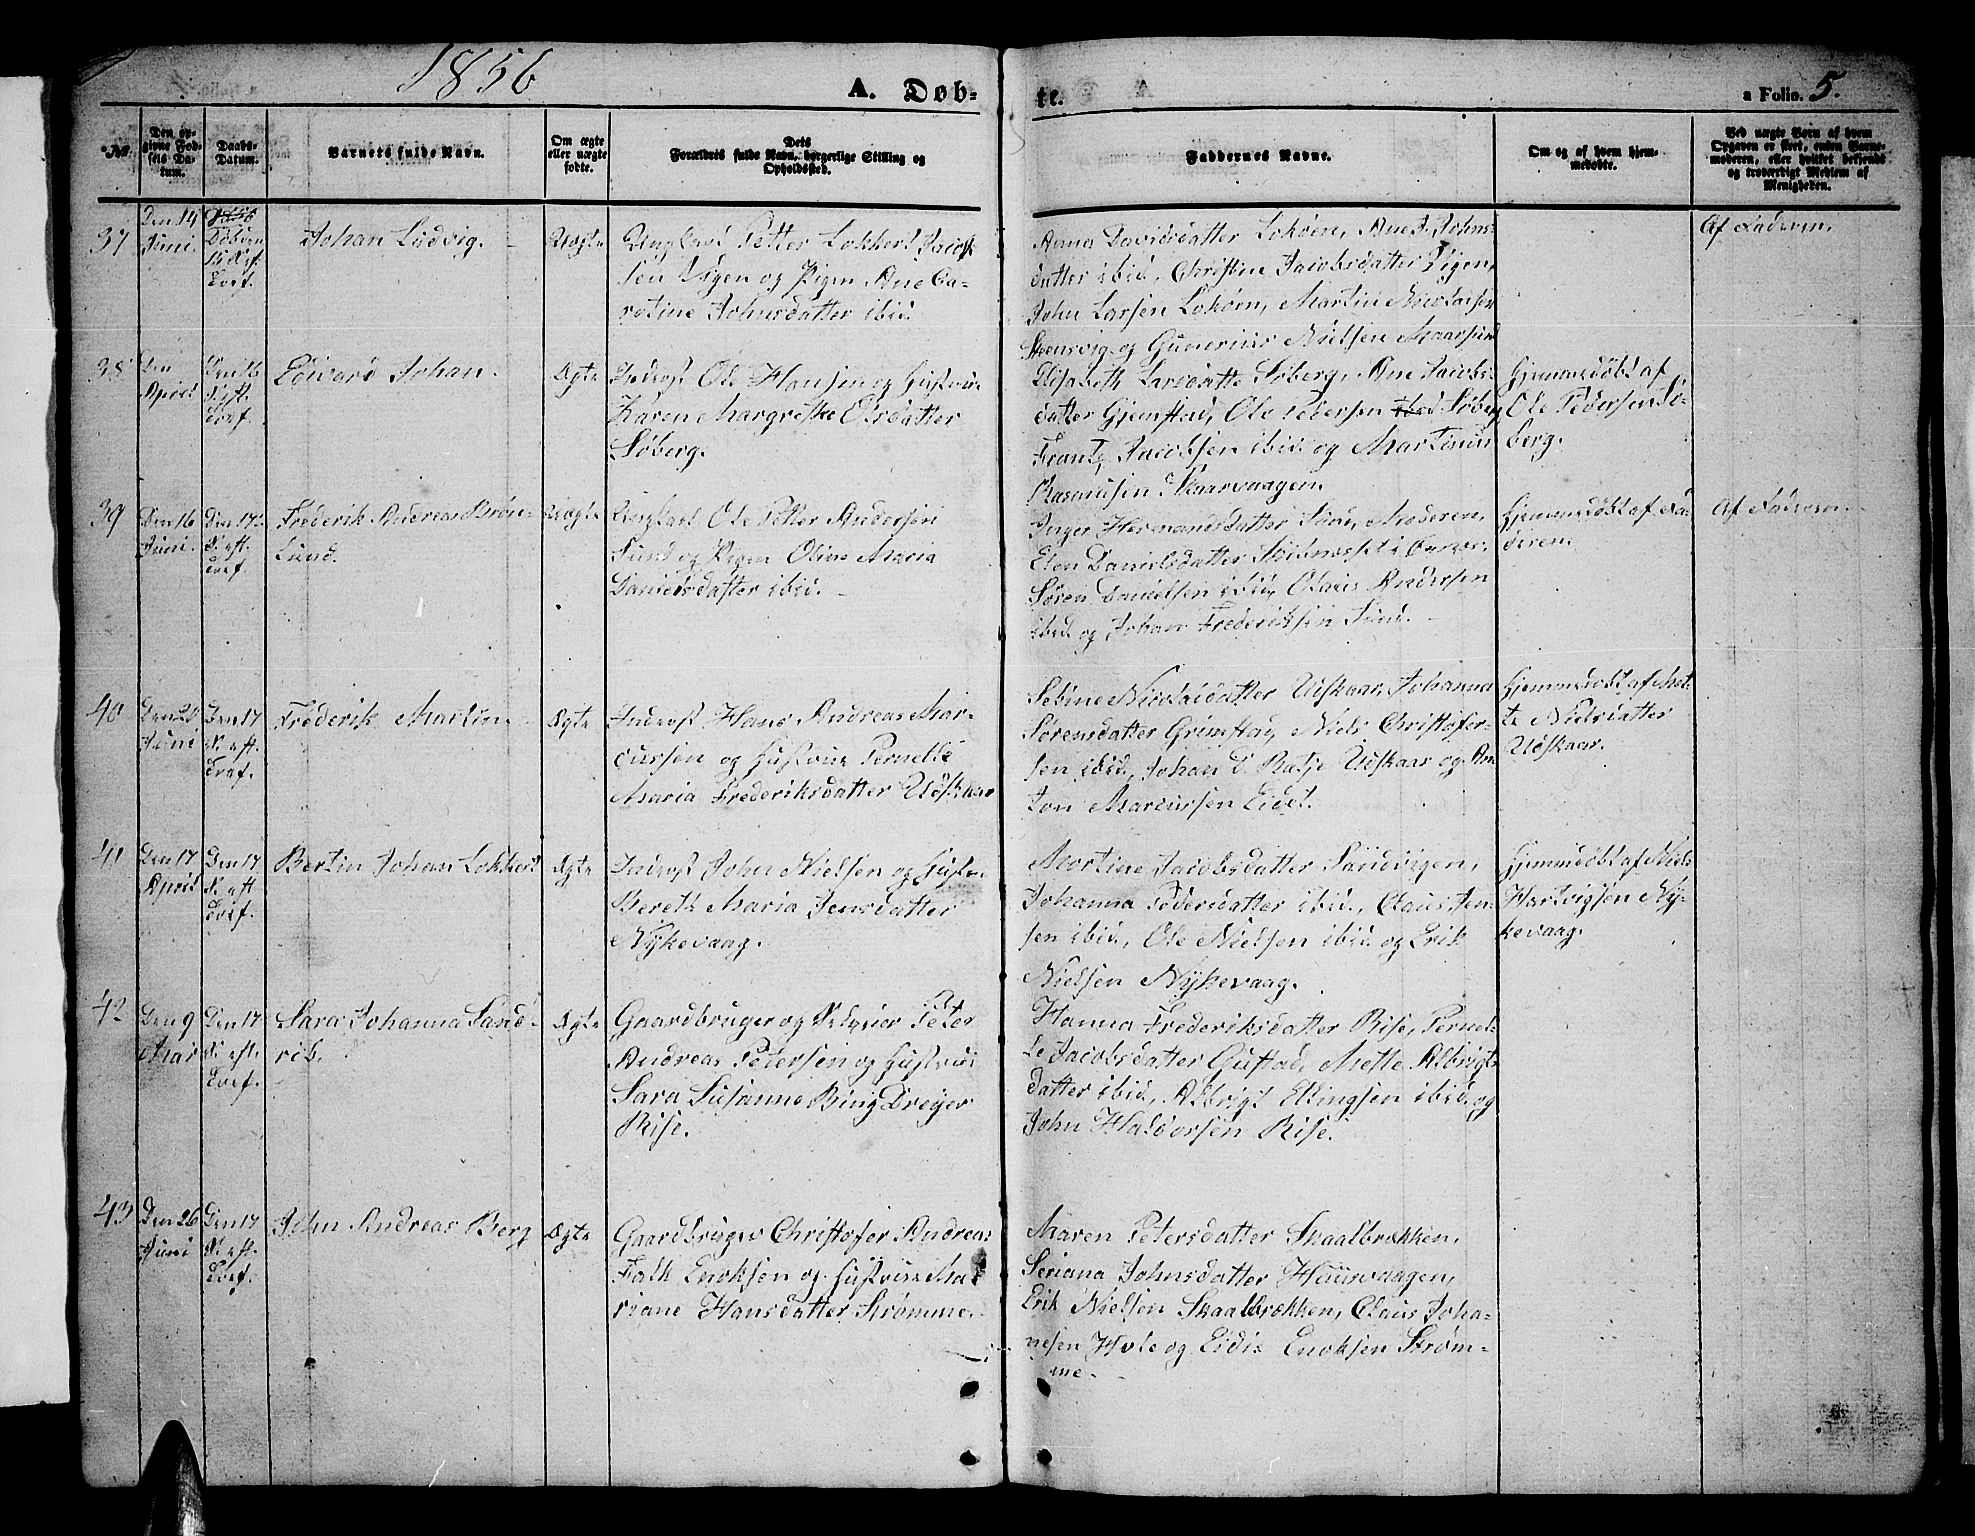 1856
A. Døb-
te.
a Folio. 5.
№
Den op-
givne Fød-
sels Da-
tum.
Daabs-
Datum.
Barnets fulde Navn.
Om ægte
eller uægte
fødte.
Dets
Forældres fulde Navn, borgerlige Stilling og
Opholdssted.
Faddernes Navne.
Om og af hvem hjem-
medøbte.
Ved uægte Børn af hvem
Opgaven er skeet, enten Barne-
moderen, eller hvilket bekjendt
og troværdigt Medlem af
Menigheden.
37
Den 14
Juni.
Johan Ludvig.
Uægte
Ungkarl Petter Lokkert Jacob-
sen Vigen og Pigen Ane Ca-
rotine Johnsdatter ibid.
Anna Davidsdatter Lokøen, Ane J. Johns-
datter ibid, Christin Jacobsdatter Vigen,
John Larsen Lokøen, Martin Nicolaisen
Steensvig og Gunerius Nielsen Maarsund
Af Faderen.
38
Den
April
Den 16
S. eft.
Tref.
Edvard Johan.
Ægte
Inderst Ole Hansen og Hustrue
Karen Margrethe Olsdatter
Søberg.
Elisabeth Larsdatte Søberg, Ane Jacobs-
datter Gjemstad, Ole Pedersen ibid Søberg
Frantz Jacobsen ibid. og Martinus
Rasmusen Skaarvaagen.
Hjemmedøbt af
Ole Pedersen Sø-
berg.
39
Den 16
Juni.
Den 17
S. eft.
Tref.
Frederik Andreas Brøn-
Lund.
Uægte
Ungkarl Ole Petter Andersen
Sund og Pigen Oline Maria
Danielsdatter ibid.
Inger Hermandsdatter Sund, Moderen,
Elen Danielsdatter
Søren Danielsen ibid, Olaus Andersen
ibid. og Johan Frederiksen Sund.
Hjemmedøbt af Fa-
deren.
Af Faderen.
40
Den 20
Juni
Den 17
S. eft.
Tref.
Frederik Martin
Ægte
Inderst Hans Andreas Mar-
cussen og Hustrue Pernelle
Maria Frederiksdatter Udskaar
Sebine Nicolaidatter Udskaar, Johanna
Sørensdatter Grimstad, Niels Christofer-
sen ibid, Johan D. Ratje Udskaar og An-
ton Marcussen Eidet.
Hjemmedøbt af Met-
te Nielsdatter
Udskaar.
41
Den 17
April
Den 17
S. eft
Tref.
Bertin Johan Lokkert
Ægte
Inderst John Nielsen og Hustr.
Bereth Maria Jensdatter
Nykevaag.
Martine Jacobsdatter Sandvigen,
Johanna Pedersdatter ibid, Claus Jen-
sen ibid, Ole Nielsen ibid og Erik
Nielsen Nykevaag.
Hjemmedøbt af Niels
Hartvigsen Ny-
kevaag.
42
Den 9
Mai
Den 17
S. eft.
Tref.
Sara Johanna Sand-
vik.
Ægte
Gaardbruger og Peter
Andreas Petersen og Hustrue
Sara Susanne Bing Dreyer
Rise.
Hanna Frederiksdatter Rise, Pernel-
le Jacobsdatter Gustad, Mette Albrigts-
datter ibid, Albrigt Ellingsen ibid og
John Haldorsen Rise.
43
Den 26
Juni
Den 17
S. eft.
Tref.
John Andreas Berg
Ægte
Gaardbruger Christofer Andreas
Falk Enoksen og Hustrue Ma-
riane Hansdatter Strømme.
Maren Petersdatter Skaalbrækken,
Seriana Johnsdatter Haurvaagen,
Erik Nielsen Skaalbrækken, Claus Joha-
nesen Hole og Eidis Enoksen Strøm-
me.